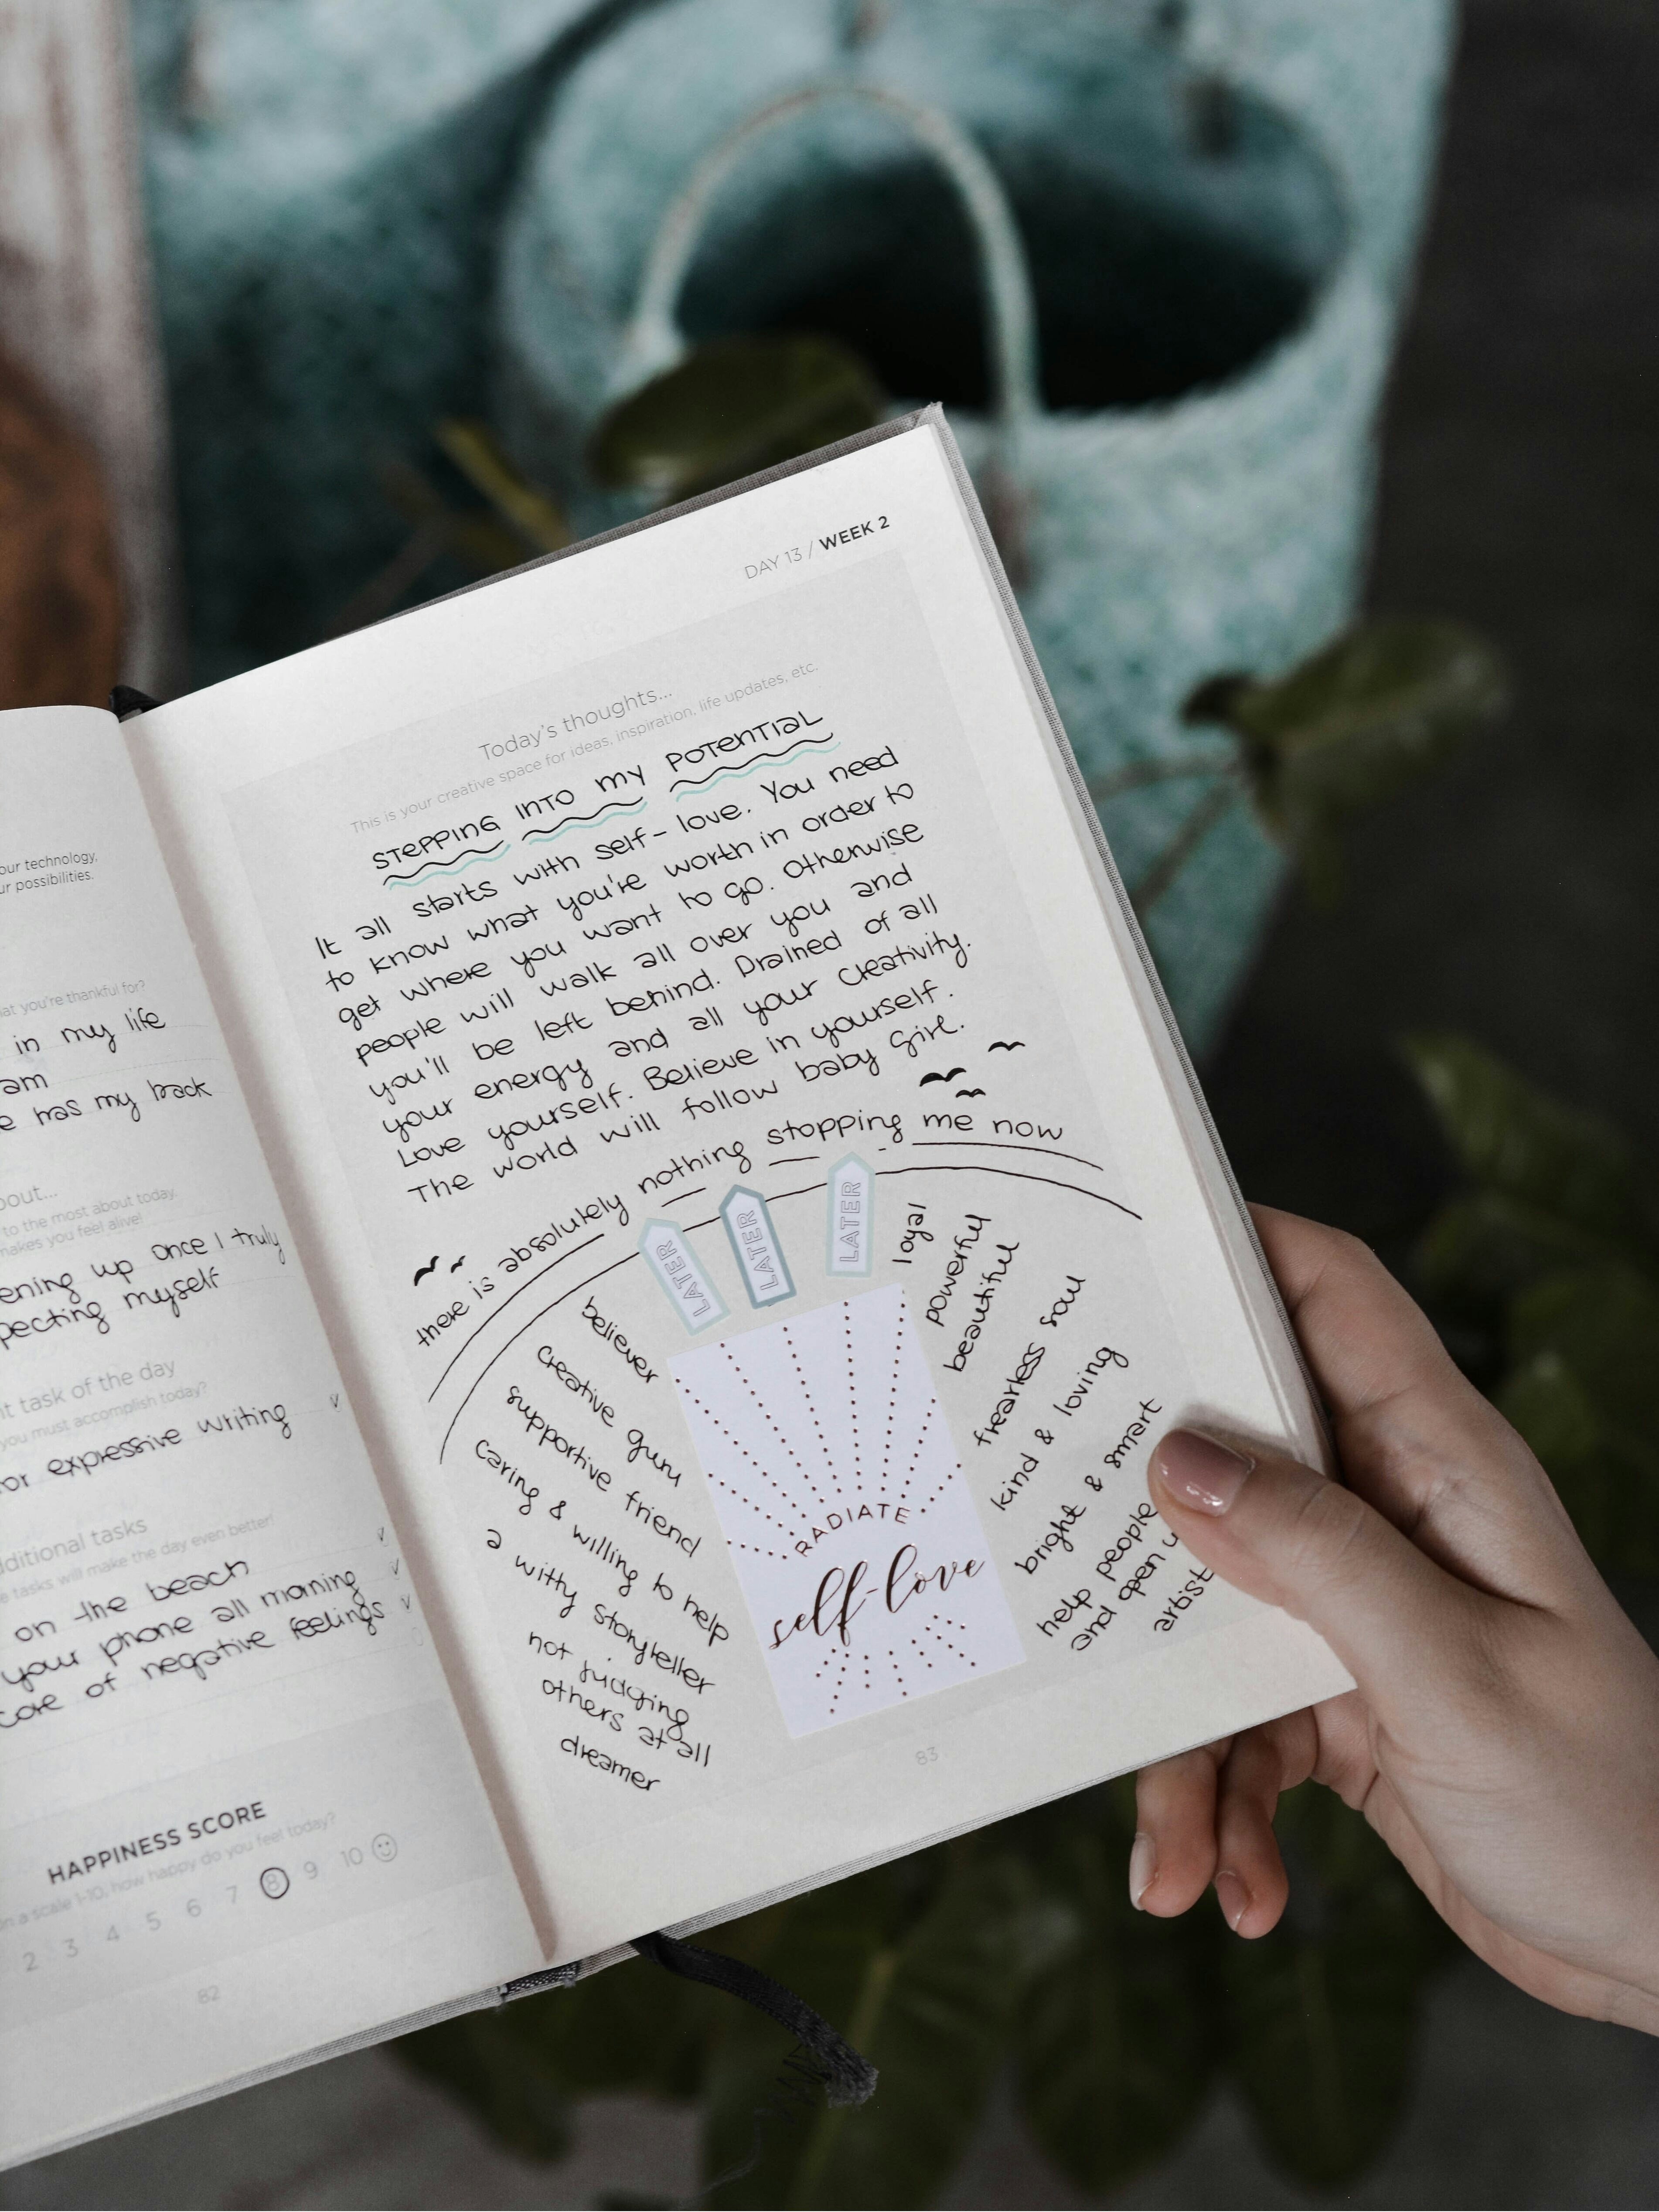 our technology,
ur possibilities.
at you're thankful for?
in my life
am
e has my back
bout...
to the most about today,
makes you feel alive!
ening up once I truly
pecting myself
nt task of the day
you must accomplish today?
or expressive writing
dditional tasks
e tasks will make the day even better!
on the beach
your phone all morning
core of negative feelings
HAPPINESS SCORE
on a scale 1-10, how happy do you feel today?
2 3 4 5 6 7 8 9 10
82
DAY 13 / WEEK 2
Today's thoughts...
This is your creative space for ideas, inspiration, life updates, etc.
STEPPING INTO MY POTENTIAL
It all starts with self-love. You need
to know what you're worth in order to
get where you want to go. Otherwise
people will walk all over you and
you'll be left behind. Drained of all
your energy and all your creativity.
Love yourself. Believe in yourself.
The world will follow baby girl.
there is absolutely nothing stopping me now
LATER
LATER
LATER
believer
creative guru
supportive friend
caring & willing to help
a witty storyteller
not judging
others at all
dreamer
RADIATE
self-love
loyal
powerful
beautiful
fhearless soul
kind & loving
bright & smart
help people
and open u
artist
83